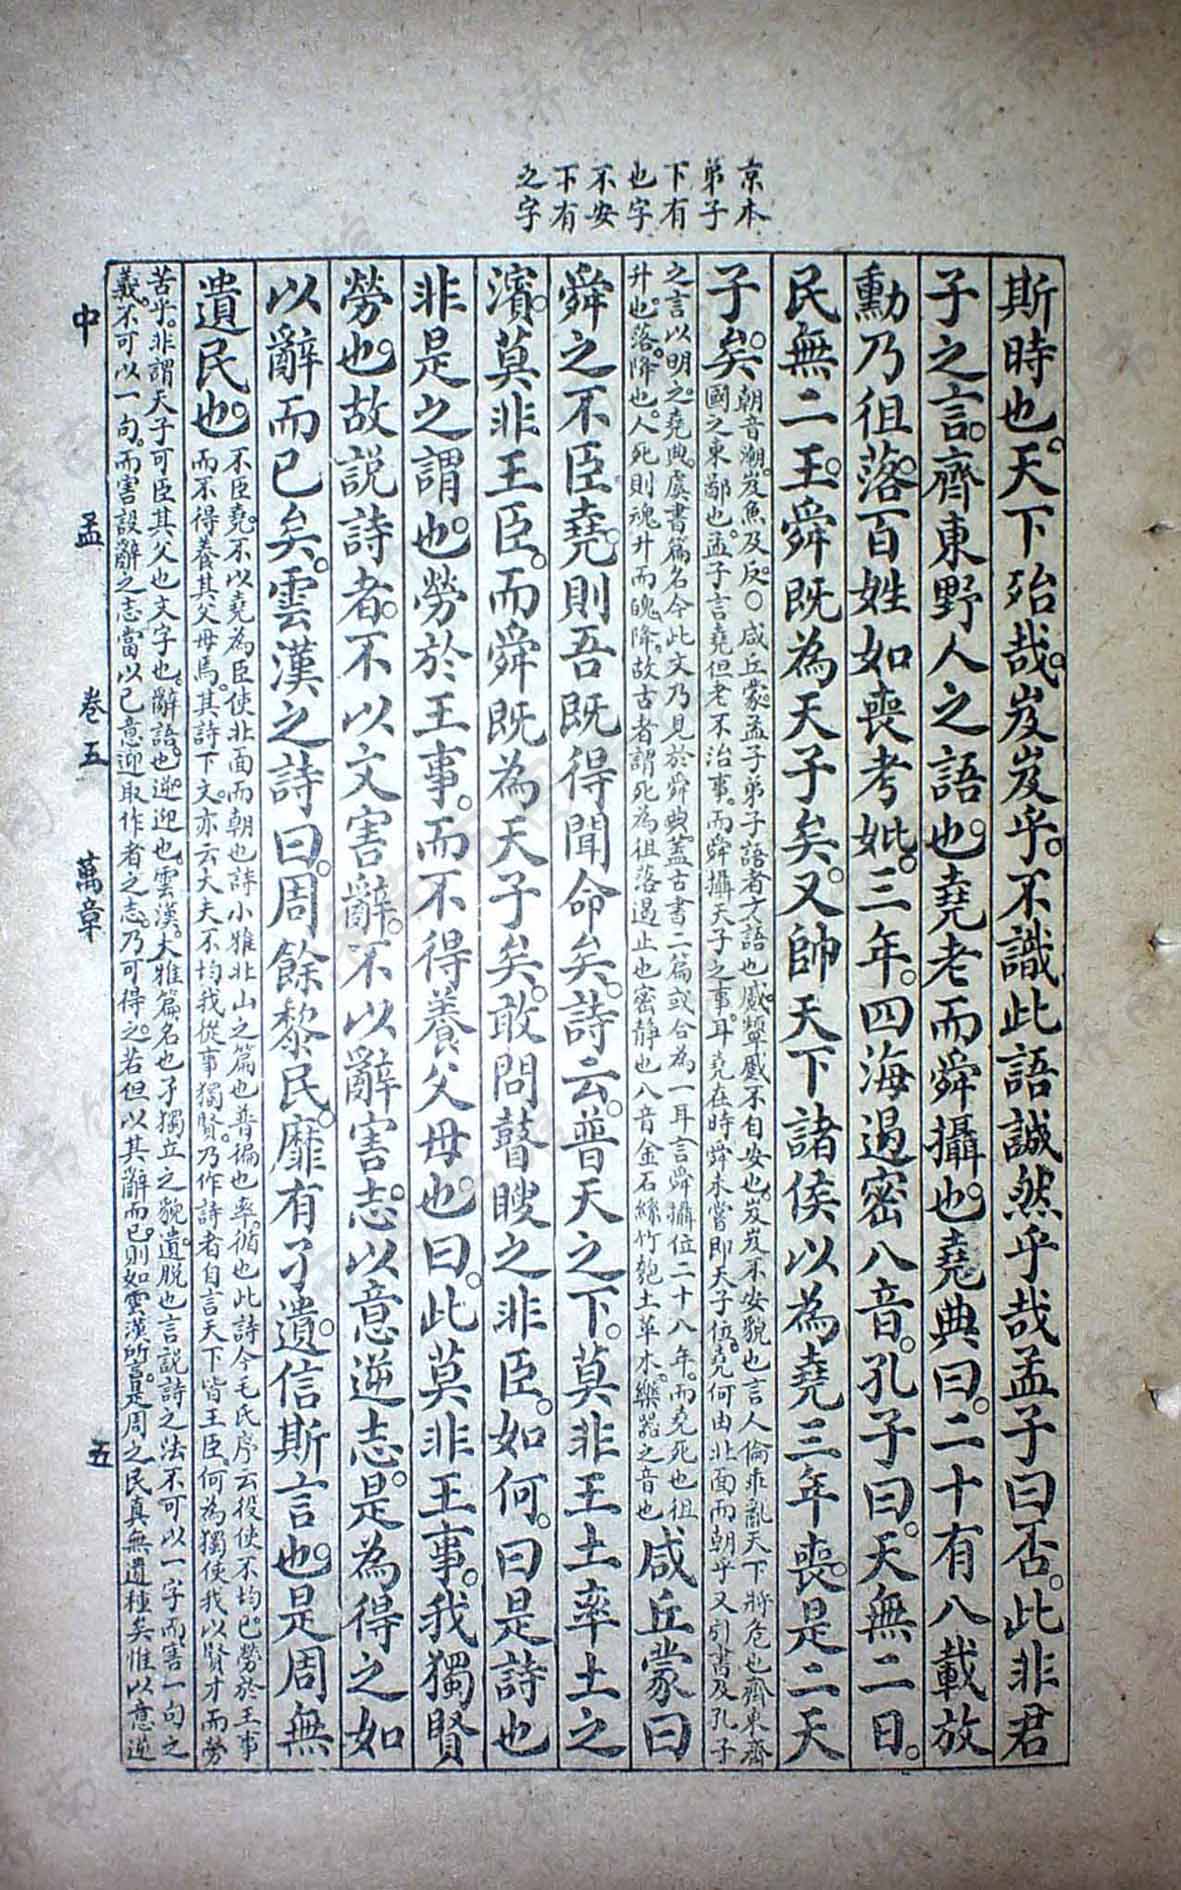 京本
弟子
下有
也字
不安
下有
之字
斯時也。天下殆哉。岌岌乎。不識此語誠然乎哉孟子曰否。此非君
子之言。齊東野人之語也。堯老而舜攝也。堯典曰。二十有八載放
勳乃徂落。百姓如喪考妣。三年。四海遏密八音。孔子曰。天無二日。
民無二王。舜既為天子矣。又帥天下諸侯以為堯三年喪。是二天
子矣。
朝音潮。岌魚及反。○咸丘蒙。孟子弟子語者古語也。蹙顰蹙不自安也。岌岌不安貌也言人倫乖亂天下將危也齊東齊
國之東鄙也。孟子言堯但老不治事。而舜攝天子之事。耳堯在時舜未嘗即天子位。堯何由北面而朝乎又引書及孔子
之言以明之。堯典。虞書篇名今此文乃見於舜典蓋古書二篇或合為一耳言舜攝位二十八年。而堯死也徂
升也。落降也。人死則魂升而魄降。故古者謂死為徂落遏止也密靜也八音金石絲竹匏土革木。樂器之音也
咸丘蒙曰
舜之不臣堯。則吾既得聞命矣。詩云。普天之下。莫非王土率土之
濱。莫非王臣。而舜既為天子矣。敢問瞽瞍之非臣。如何。曰是詩也
非是之謂也。勞於王事。而不得養父母也。曰。此莫非王事。我獨賢
勞也。故說詩者。不以文害辭。不以辭害志。以意逆志。是為得之如
以辭而已矣。雲漢之詩曰。周餘黎民。靡有孑遺。信斯言也。是周無
遺民也。
不臣堯。不以堯為臣使北面而朝也詩小雅北山之篇也普徧也率。循也此詩今毛氏序云役使不均。已勞於王事
而不得養其父母焉。其詩下文。亦云大夫不均我從事獨賢。乃作詩者自言天下皆王臣何為獨使我以賢才而勞
苦乎。非謂天子可臣其父也文字也。辭語也。逆迎也。雲漢。大雅篇名也孑獨立之貌。遺脫也言說詩之法不可以一字而害一句之
義。不可以一句。而害設辭之志當以己意迎取作者之志。乃可得之。若但以其辭而已。則如雲漢所言。是周之民真無遺種矣惟以意逆
中 孟 卷五 萬章 五